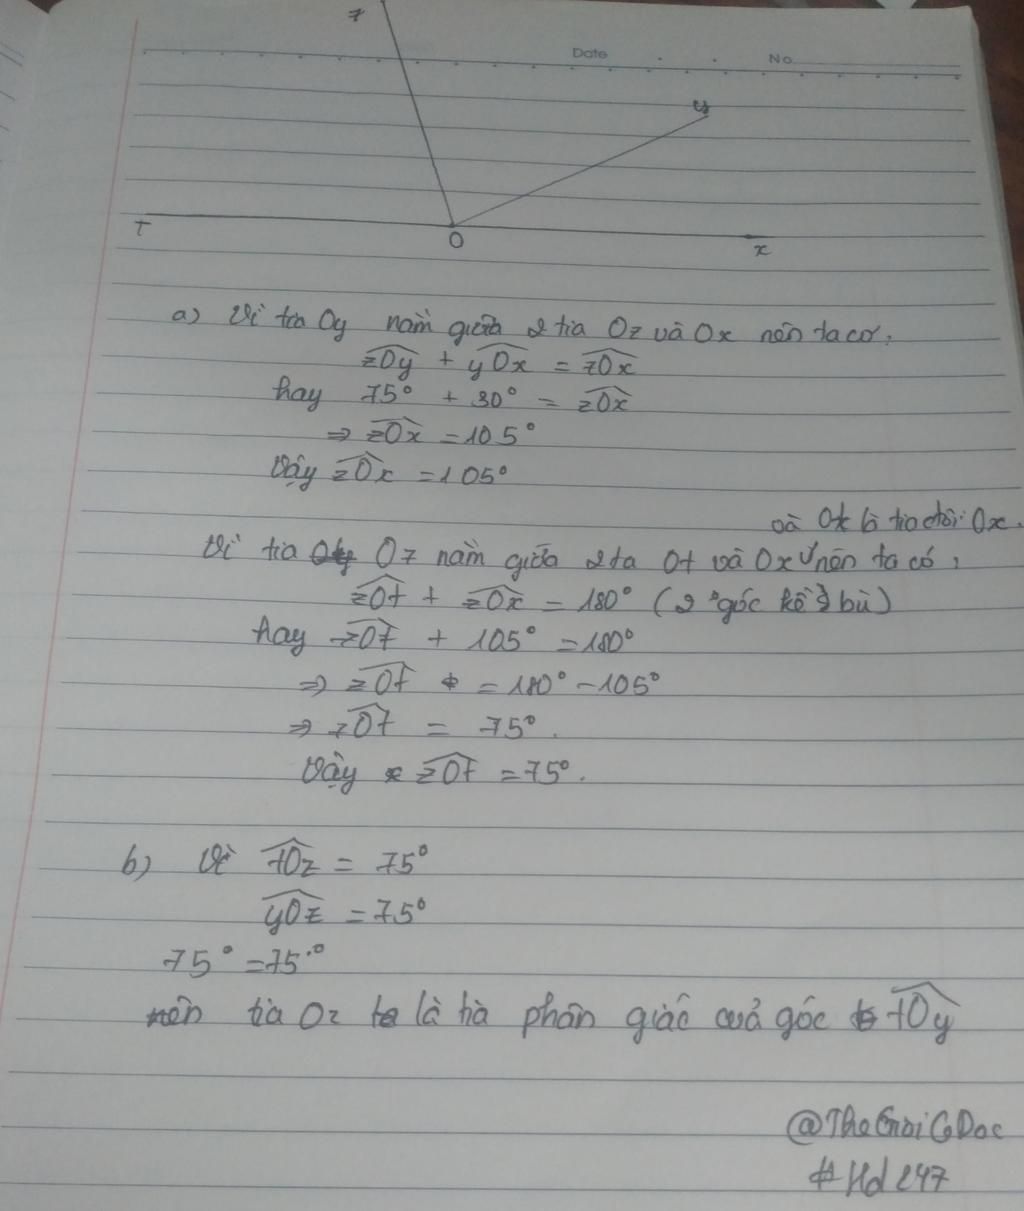 z
Date No
y
T
O
x
a) Vì tia Oy nằm giữa 2 tia Oz và Ox nên ta có:
zOy + yOx = zOx
hay 75° + 30° = zOx
⇒ zOx = 105°
Vậy zOx = 105°
và Ot là tia đối Ox.
Vì tia Oz nằm giữa 2 tia Ot và Ox nên ta có:
zOt + zOx = 180° (2 góc kề bù)
hay zOt + 105° = 180°
⇒ zOt = 180° - 105°
⇒ zOt = 75°.
Vậy zOt = 75°.
b) Vì tOz = 75°
yOz = 75°
75° = 75°
nên tia Oz là tia phân giác của góc tOy
@TheGioiCoDoc
#Hd247